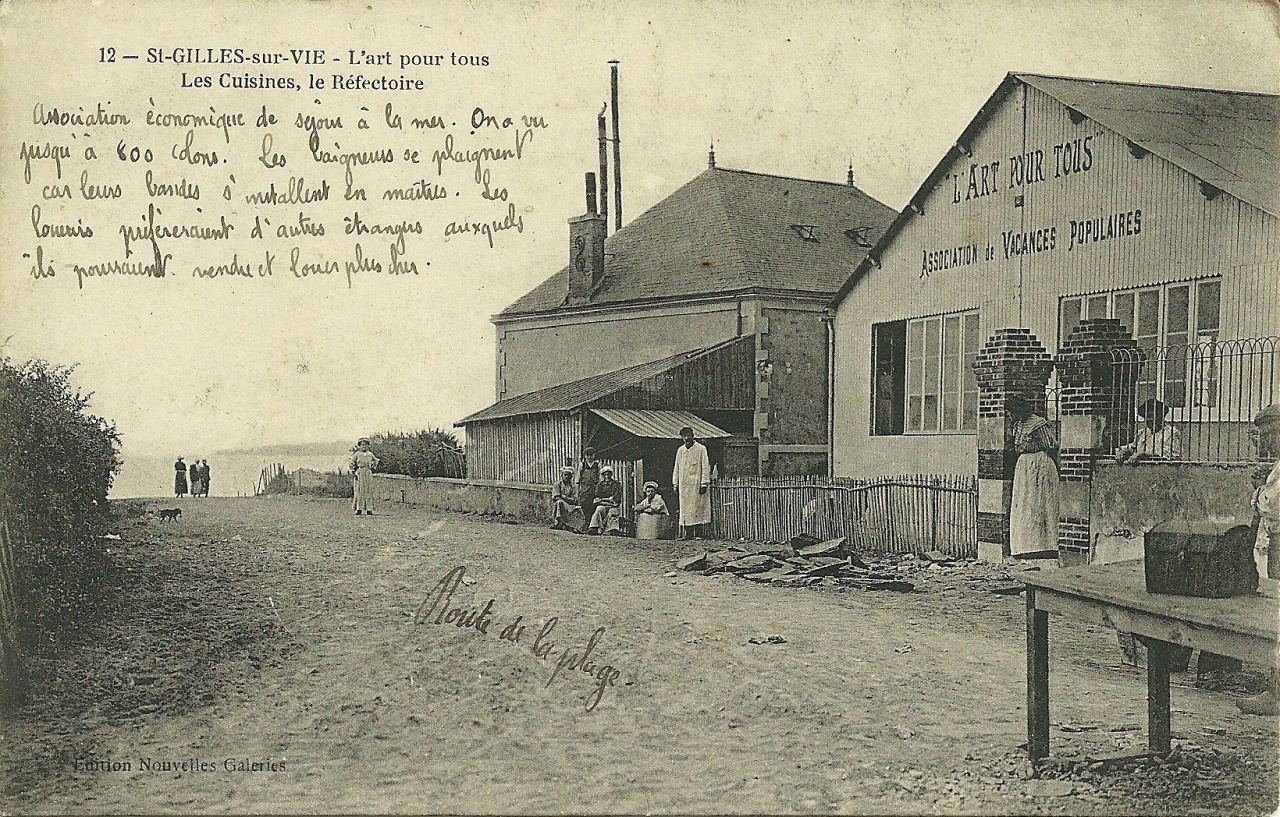 12 — St-GILLES-sur-VIE - L'art pour tous
Les Cuisines, le Réfectoire
Association économique de séjour à la mer. On a vu
jusqu'à 600 colons. Les baigneurs se plaignent
car leurs bandes s'installent en maîtres. Les
loueurs préfèreraient d'autres étrangers auxquels
ils pourraient vendre et louer plus cher.
"L'ART POUR TOUS"
ASSOCIATION de VACANCES POPULAIRES
Route de la plage.
Edition Nouvelles Galeries